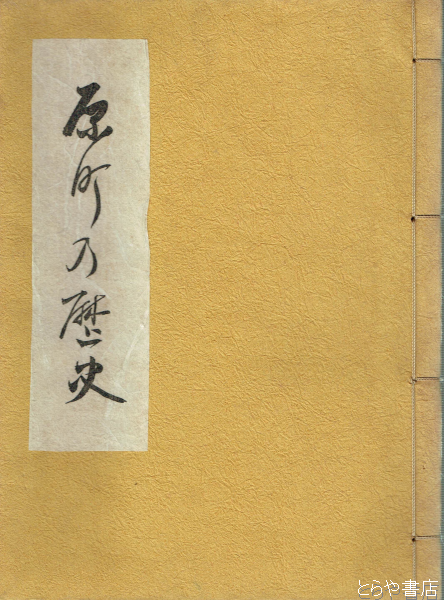 原町の歴史
とらや書店